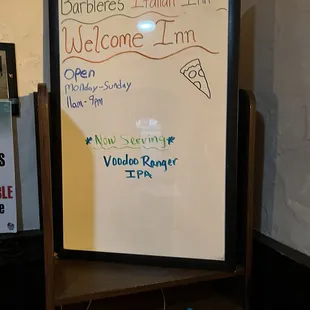 Barbieres Italian Inn
Welcome Inn
Open
Monday-Sunday
11am-9pm
*Now Serving*
Voodoo Ranger
IPA